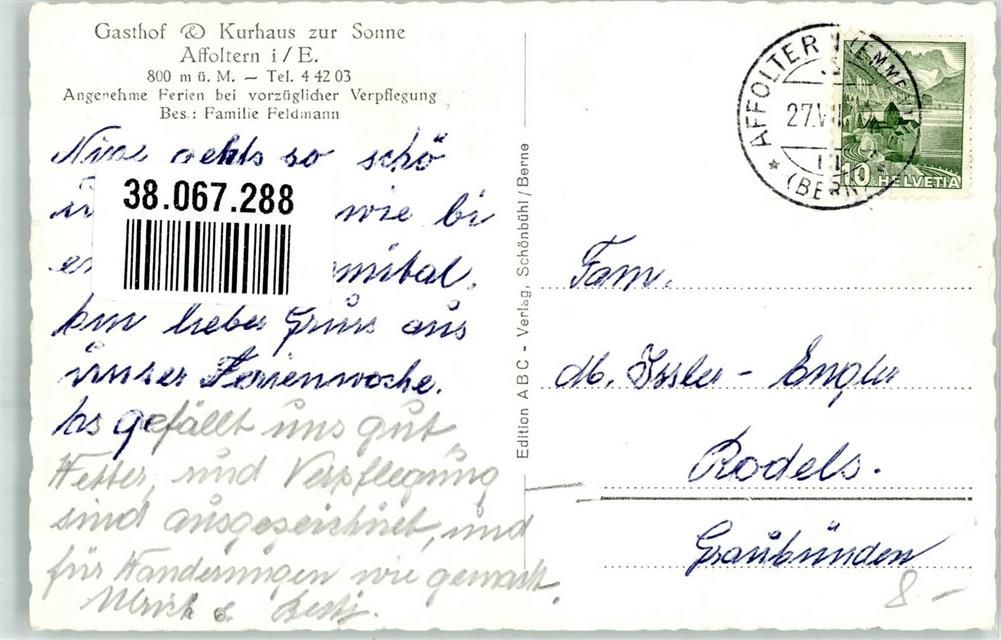 Gasthof & Kurhaus zur Sonne
Affoltern i/E.
800 m ü. M. – Tel. 4 42 03
Angenehme Ferien bei vorzüglicher Verpflegung
Bes.: Familie Feldmann
gehts so schö
38.067.288
wie bi
lieber Gruss aus
unser Ferienwoche.
Es gefällt uns gut,
Wetter, und Verpflegung
sind ausgezeichnet, und
für Wanderungen wie gemacht.
Ulrich &
Edition ABC - Verlag, Schönbühl/Berne
AFFOLTERN (EMMENTAL)
27.V
(BERN)
10 HELVETIA
Fam.
M. Issler - Engler
Rodels.
Graubünden
8.-